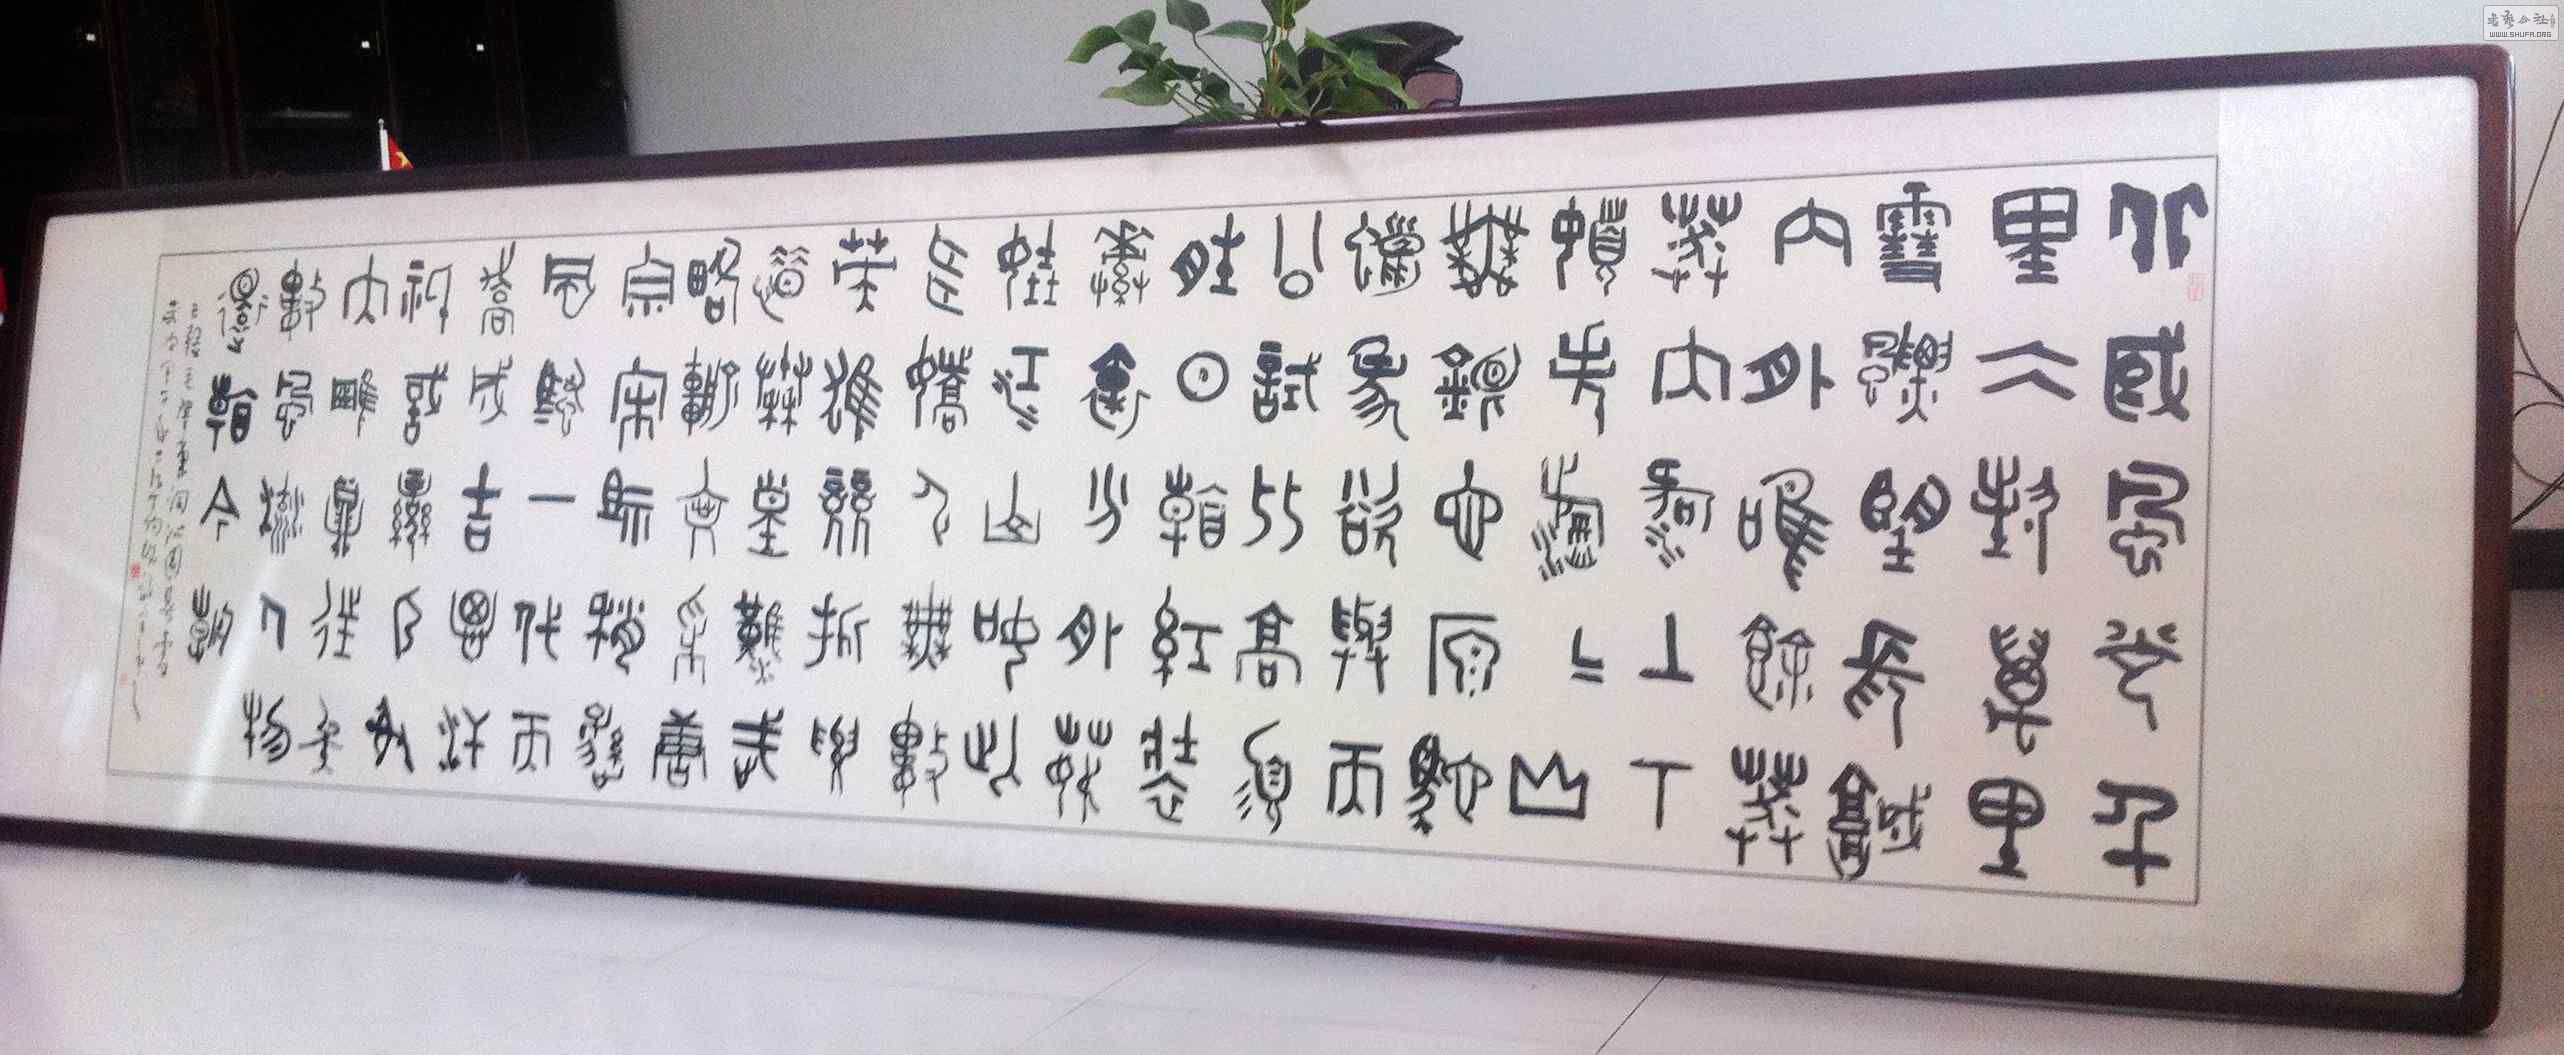 北國風光千
里冰封萬里
雪飄望長城
內外唯餘莽
莽大河上下
頓失滔〻山
舞銀蛇原馳
蠟象欲與天
公試比高須
晴日看紅裝
素裹分外妖
嬈江山如此
多嬌引無數
英雄競折腰
惜秦皇漢武
略輸文采唐
宗宋祖稍遜
風騷一代天
驕成吉思汗
只識彎弓射
大雕俱往矣
數風流人物
還看今朝
WWW.SHUFA.ORG